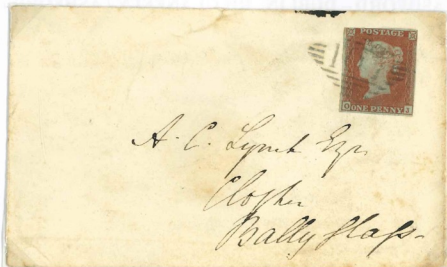 POSTAGE
ONE PENNY
A. C. Lynch Esqr
Clogher
Ballyglass